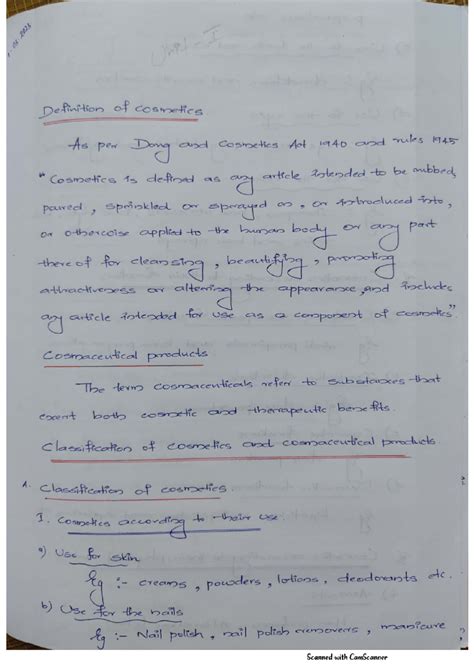 Unit-I
Definition of cosmetics
As per Drug and Cosmetics Act 1940 and rules 1945
"Cosmetics is defined as any article intended to be rubbed,
poured, sprinkled or sprayed on, or introduced into,
or otherwise applied to the human body or any part
there of for cleansing, beautifying, promoting
attractiveness or alterring the appearance, and includes
any article intended for use as a component of cosmetics"
Cosmaceutical products
The term cosmaceuticals refer to substances that
exert both cosmetic and therapeutic benefits.
Classification of cosmetics and cosmaceutical products
A. Classification of cosmetics
I. Cosmetics according to their use
a) Use for skin
Eg :- creams, powders, lotions, deodorants etc.
b) Use for the nails
Eg :- Nail polish, nail polish removers, manicure
Scanned with CamScanner